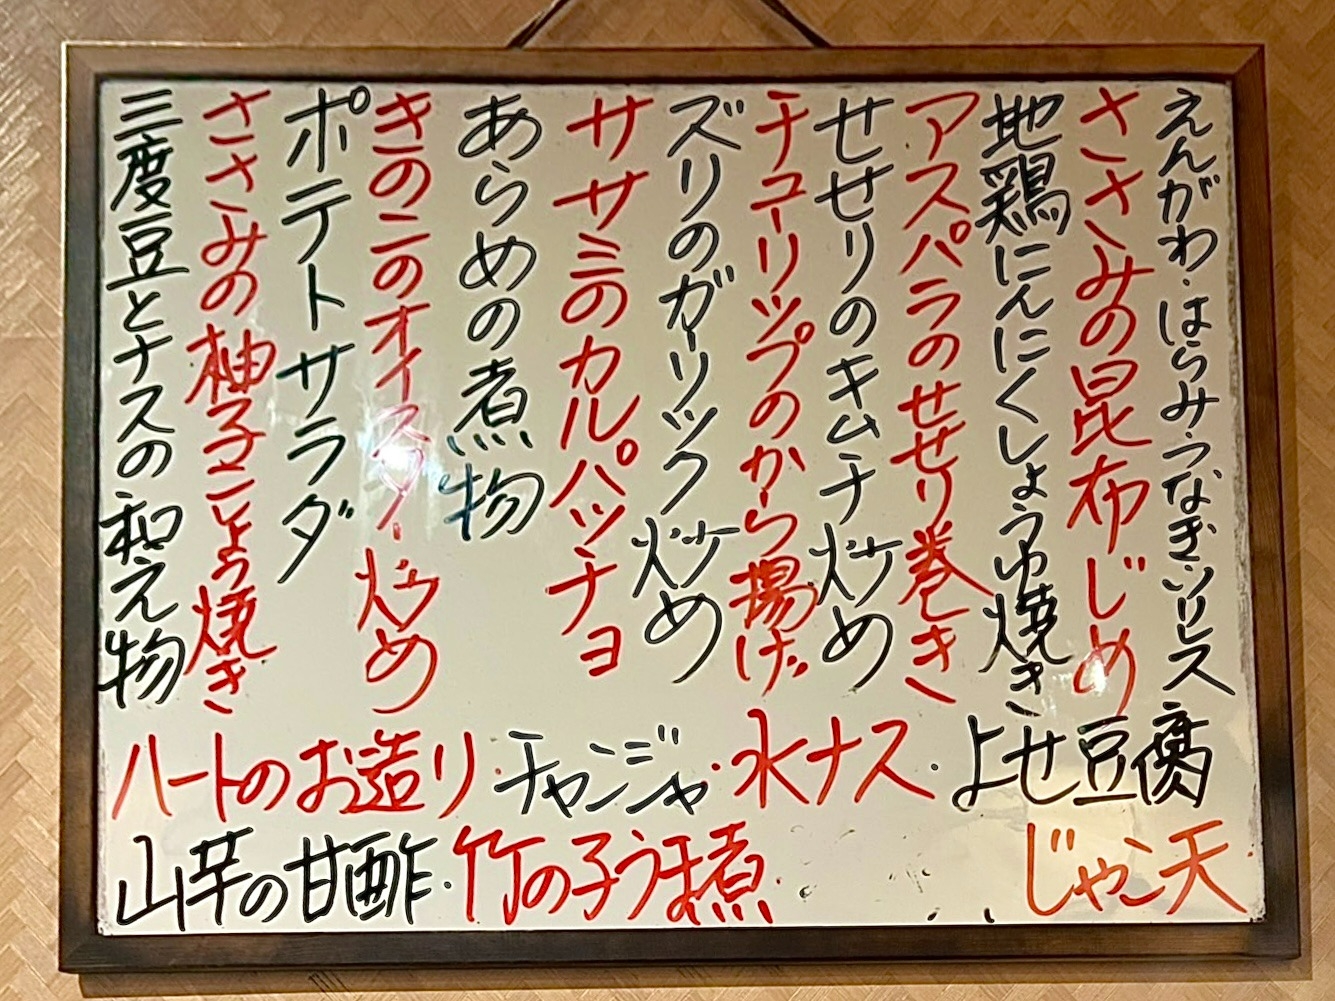 えんがわ・はらみ・うなぎ・ソリレス
ささみの昆布じめ
地鶏にんにくしょうゆ焼き
アスパラのせせり巻き
せせりのキムチ炒め
チューリップのから揚げ
ズリのガーリック炒め
ササミのカルパッチョ
あらめの煮物
きのこのオイスター炒め
ポテトサラダ
ささみの柚子こしょう焼き
三度豆とナスの和え物
ハートのお造り・チャンジャ・水ナス・よせ豆腐
山芋の甘酢・竹の子うま煮・じゃこ天